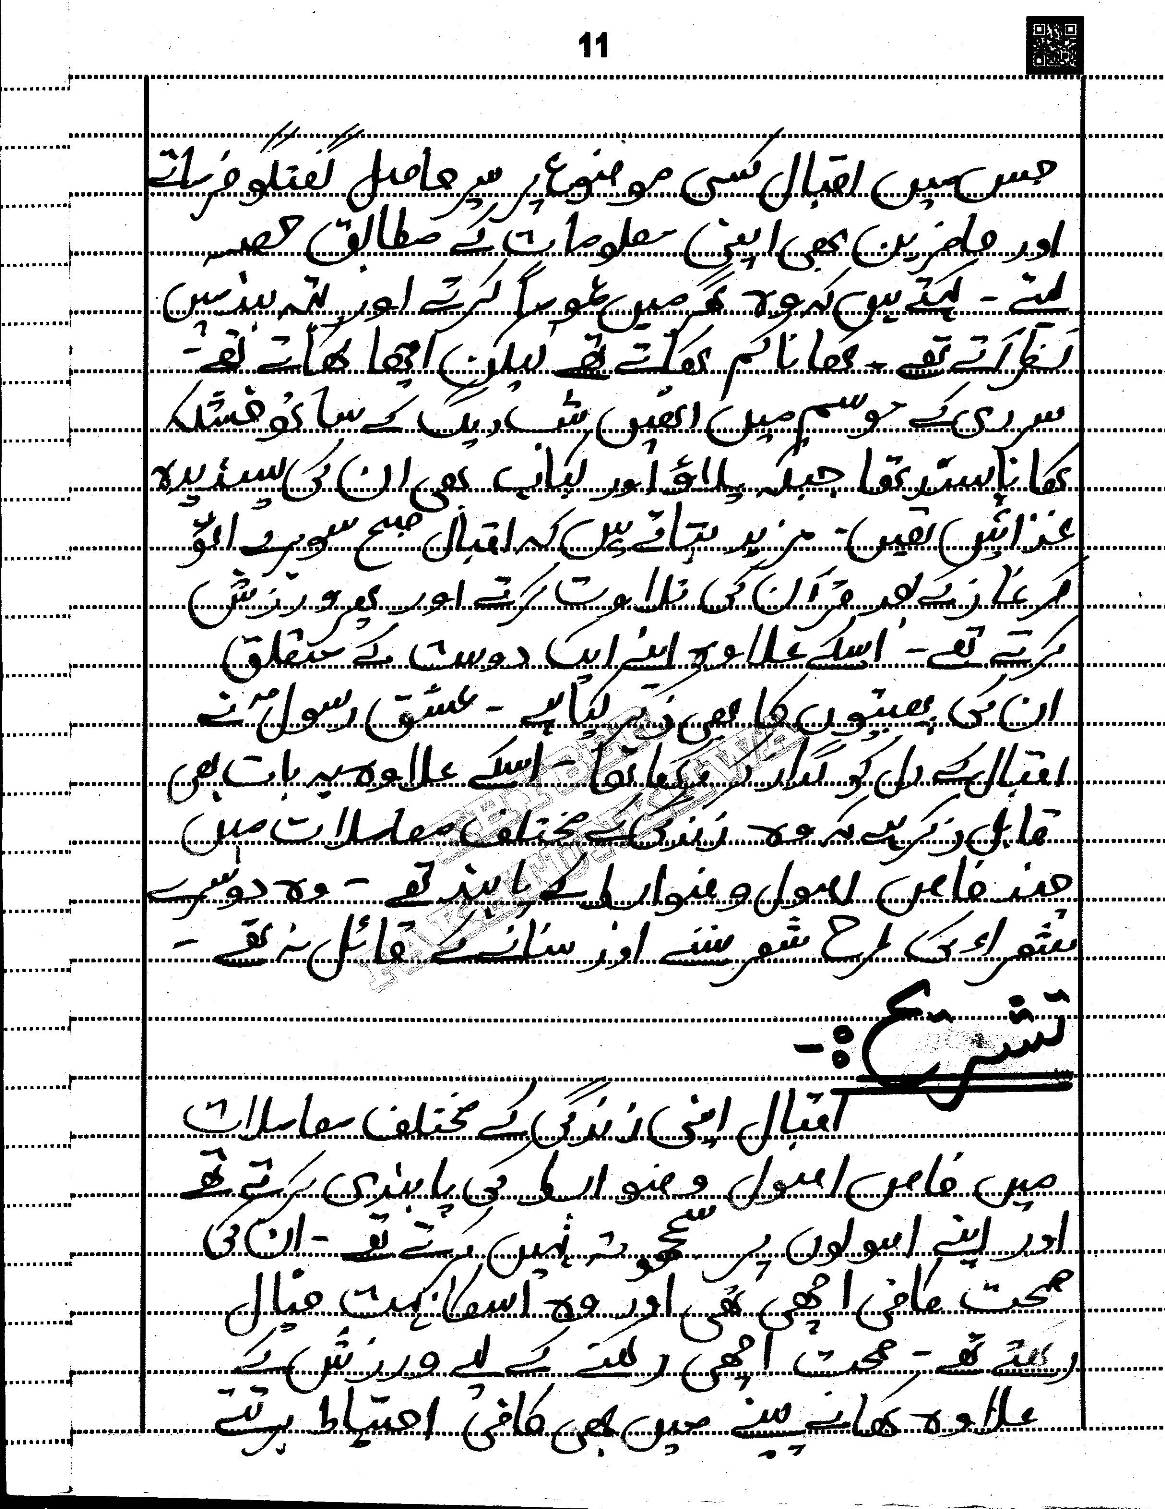 11
جس میں اقبال کسی موضوع پر سیر حاصل گفتگو فرماتے
اور حاضرین بھی اپنی معلومات کے مطابق حصہ
لیتے ۔ کہتے ہیں کہ وہ گھر میں کرتے اور تہہ بند میں
نظر آتے تھے ۔ کھانا کم کھاتے تھے لیکن اچھا کھاتے تھے ۔
سردی کے موسم میں انھیں شب دیگ کے ساتھ خشکہ
کھانا پسند تھا جبکہ پلاؤ اور کباب بھی ان کی پسندیدہ
غذائیں تھیں ۔ مزید بتاتے ہیں کہ اقبال صبح سویرے اٹھ
کر نماز کے بعد قرآن کی تلاوت کرتے اور پھر ورزش
کرتے تھے ۔ اسکے علاوہ اپنے ایک دوست کے متعلق
ان کی پھبتیوں کا بھی ذکر کیا ہے ۔ عشق رسولؐ نے
اقبال کے دل کو گداز کر رکھا تھا ۔ اسکے علاوہ یہ بات بھی
قابل ذکر ہے کہ وہ زندگی کے مختلف معاملات میں
چند خاص اصول و ضوابط کے پابند تھے ۔ وہ دوسرے
شعراء کی طرح شعر سننے اور سنانے کے قائل نہ تھے ۔
تشریح :-
اقبال اپنی زندگی کے مختلف معاملات
میں خاص اصول و ضوابط کی پابندی کرتے تھے
اور اپنے اصولوں پر سمجھوتہ نہیں کرتے تھے ۔ ان کی
صحت کافی اچھی تھی اور وہ اسکا بہت خیال
رکھتے تھے ۔ صحت اچھی رکھنے کے لیے ورزش کے
علاوہ کھانے پینے میں بھی کافی احتیاط برتتے